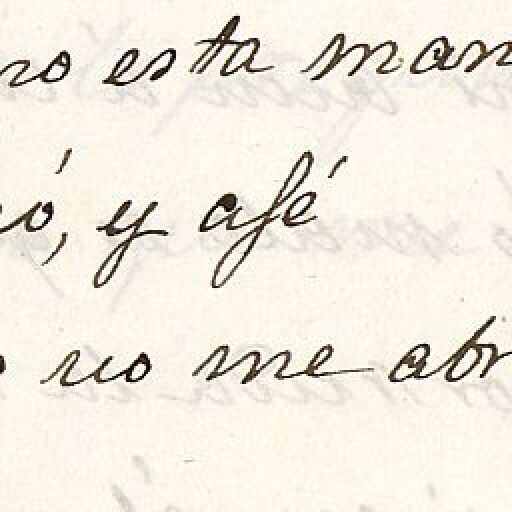 no esta man
ó, y afé
no me abr